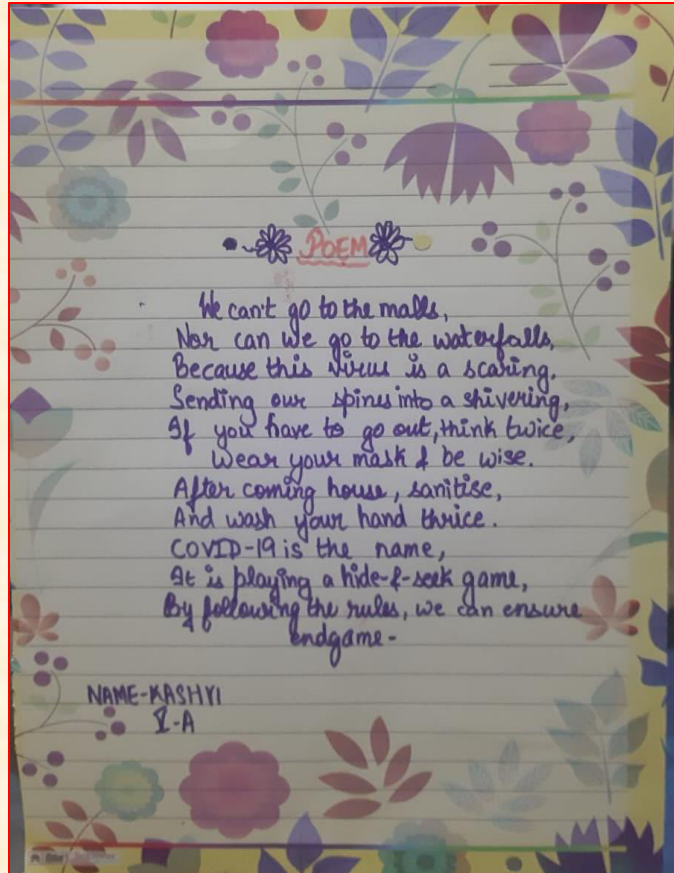 POEM
We can't go to the malls,
Nor can we go to the waterfalls,
Because this virus is a scaring,
Sending our spines into a shivering,
If you have to go out, think twice,
Wear your mask & be wise.
After coming house, sanitise,
And wash your hand thrice.
COVID-19 is the name,
It is playing a hide-&-seek game,
By following the rules, we can ensure
endgame-
NAME-KASHVI
V-A